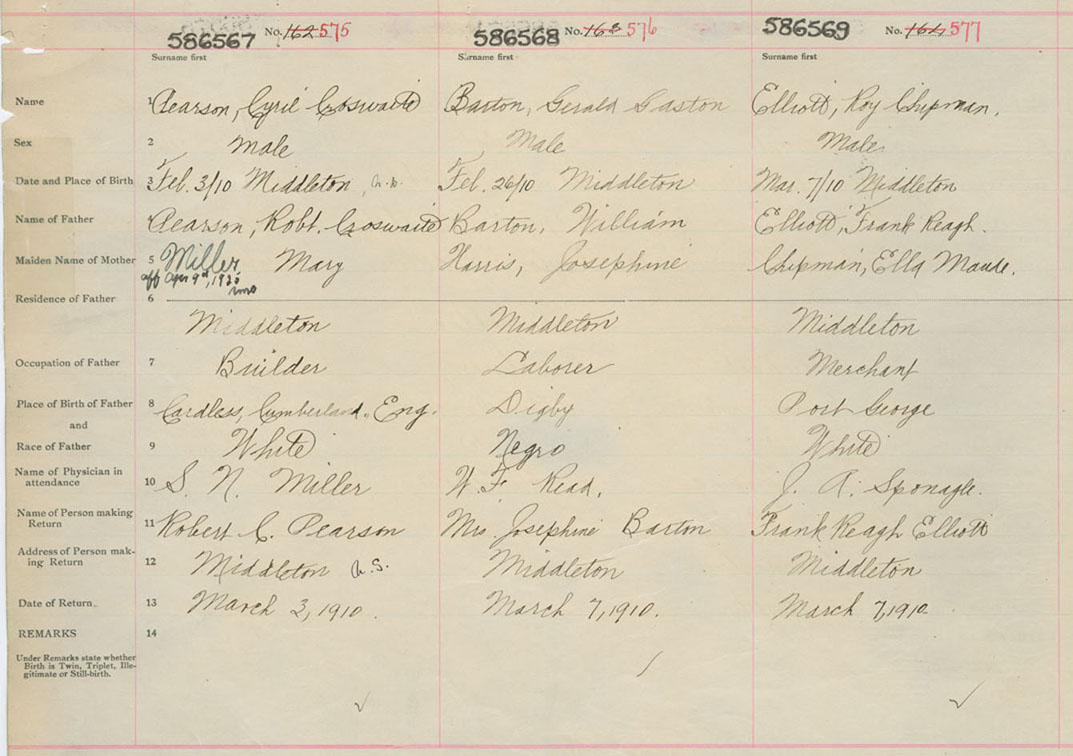 586567 No. 162 575 586568 No. 163 576 586569 No. 164 577
Surname first Surname first Surname first
Name 1 Pearson, Cyril Croswaite Barton, Gerald Gaston Elliott, Roy Chipman.
Sex 2 Male Male Male
Date and Place of Birth 3 Feb. 3/10 Middleton, Feb. 26/10 Middleton Mar. 7/10 Middleton
Name of Father 4 Pearson, Robt. Croswaite Barton, William Elliott, Frank Reagh.
Maiden Name of Mother 5 Miller Mary Harris, Josephine Chipman, Ella Maude.
aff Apr 9th, 1925
Residence of Father 6
Middleton Middleton Middleton
Occupation of Father 7 Builder Laborer Merchant
Place of Birth of Father 8 Cardless, Cumberland, Eng. Digby Port George
and
Race of Father 9 White Negro White
Name of Physician in
attendance 10 S. N. Miller W. F. Read, J. A. Sponagle.
Name of Person making
Return 11 Robert C. Pearson Mrs Josephine Barton Frank Reagh Elliott
Address of Person mak-
ing Return 12 Middleton N.S. Middleton Middleton
Date of Return 13 March 3, 1910. March 7, 1910. March 7, 1910
REMARKS 14
Under Remarks state whether
Birth is Twin, Triplet, Ille-
gitimate or Still-birth.